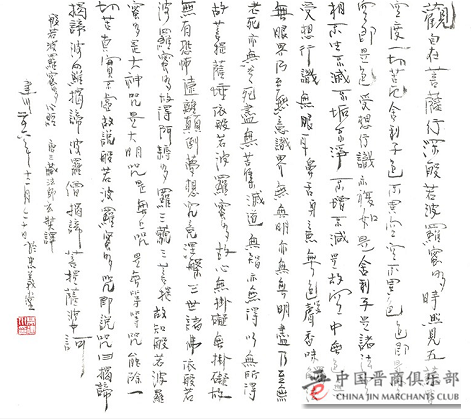 觀自在菩薩行深般若波羅蜜多時照見五
空度一切苦厄舍利子色不異空空不異色色即
空即是色受想行識亦復如是舍利子是諸法
相不生不滅不垢不淨不增不減是故空中無
受想行識無眼耳鼻舌身意無色聲香味
無眼界乃至無意識界無無明亦無無明盡乃至無
老死亦無老死盡無苦集滅道無智亦無得以無所得
故菩提薩埵依般若波羅蜜多故心無掛礙無掛礙故
無有恐怖遠離顛倒夢想究竟涅槃三世諸佛依般若
波羅蜜多故得阿耨多羅三藐三菩提故知般若波羅
蜜多是大神咒是大明咒是無上咒是無等等咒能除一
切苦真實不虛故說般若波羅蜜多咒即說咒曰揭諦
揭諦波羅揭諦波羅僧揭諦菩提薩婆訶
般若波羅蜜多心經 唐三藏法師玄奘譯
年十一月二十日於忠義堂
中国晋商俱乐部
CHINA JIN MARCHANTS CLUB